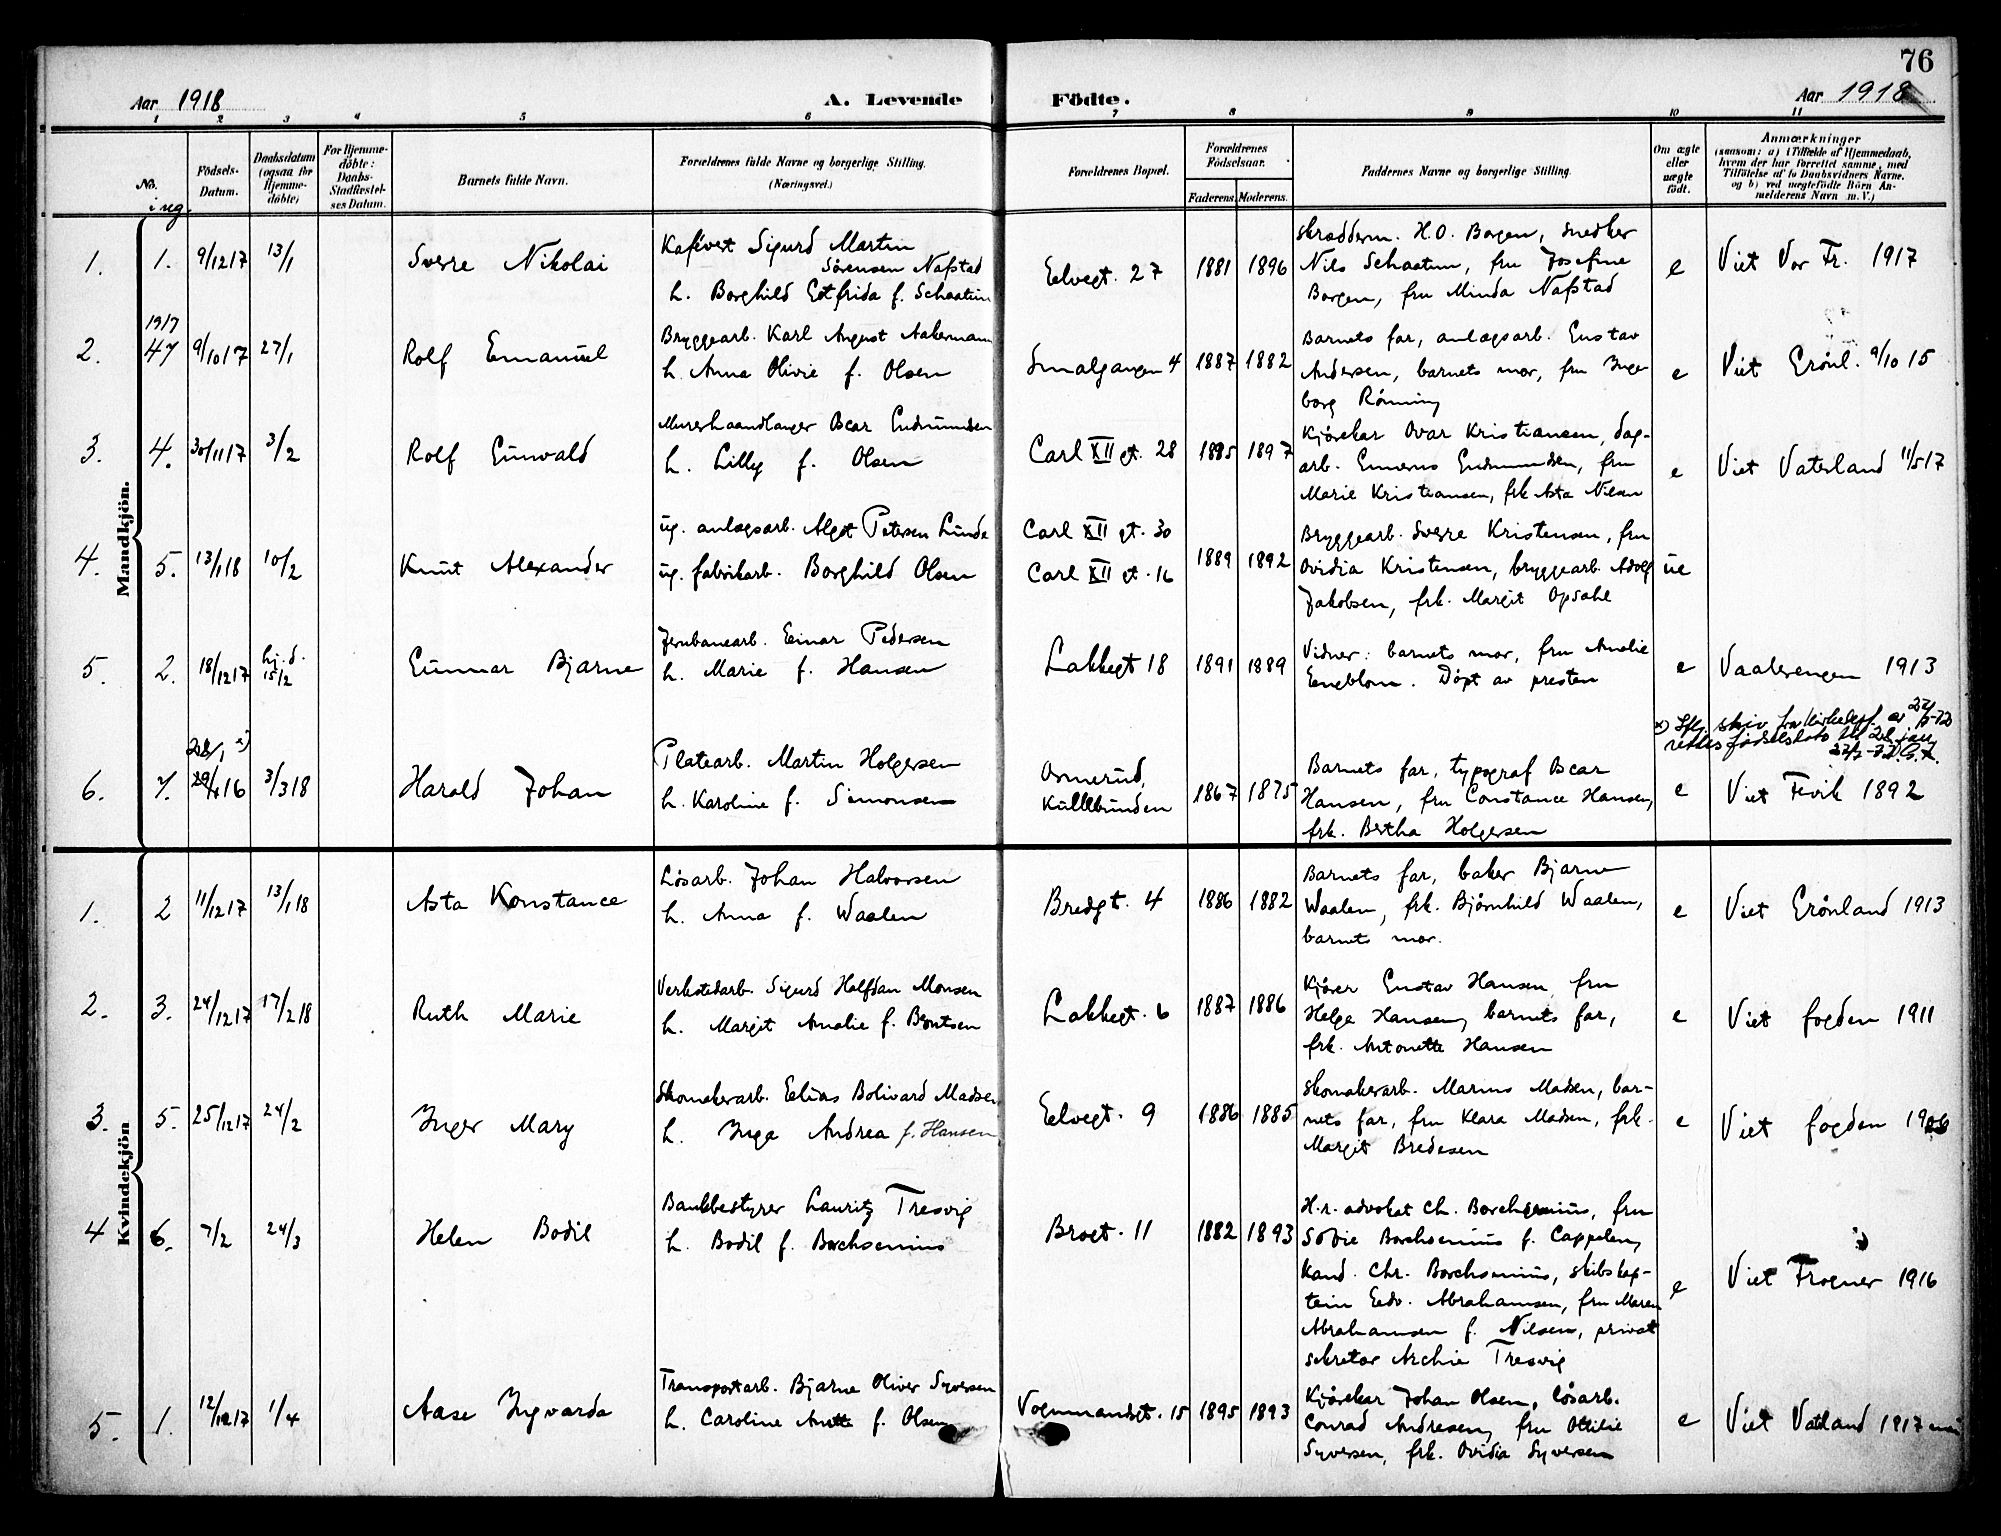 76
Aar 1918
A. Levende Födte.
Aar 1918
1 2 3 4 5 6 7 8 9 10 11
No. i reg.
Födsels-Datum.
Daabsdatum (ogsaa for Hjemme-döbte)
For Hjemme-döbte: Daabs-Stadfæstel-ses Datum.
Barnets fulde Navn.
Forældrenes fulde Navne og borgerlige Stilling.
(Næringsvei.)
Forældrenes Bopæl.
Forældrenes Födselsaar.
Faderens. Moderens.
Faddernes Navne og borgerlige Stilling.
Om ægte eller uægte födt.
Anmærkninger
(saasom: a) i Tilfælde af Hjemmedaab,
hvem der har forrettet samme, med
Tilföielse af to Daabsvidners Navne.
og b) ved uægtefödte Börn An-
melderens Navn m. V.)
Mandkjön.
1. 1. 9/12 17 13/1 Sverre Nikolai
Kafévert Sigurd Martin
Sörensen Nafstad
h. Borghild Gotfrida f. Schaatun
Elvegt. 27 1881 1896
Skrædderm. H.O. Borgen, snedker
Nils Schaatun, fru Josefine
Borgen, fru Minda Nafstad
e Viet Vor Fr. 1917
2. 1917 47 9/10 17 27/1 Rolf Emanuel
Bryggearb. Karl August Aakermann
h. Anna Olivie f. Olsen
Smalgangen 4 1887 1882
Barnets far, anlægsarb. Gustav
Andersen, barnets mor, fru Inge
borg Rönning
e Viet Grönl. 9/10 15
3. 4. 30/11 17 3/2 Rolf Gunvald
Murerhaandlanger Oscar Gudmundsen
h. Lilly f. Olsen
Carl XII gt. 28 1885 1897
Kjörekar Ovar Kristiansen, dag-
arb. Gunerus Gudmundsen, fru
Marie Kristiansen, frk Asta Nilsen
e Viet Vaterland 11/5 17
4. 5. 13/1 18 10/2 Knut Alexander
ug. anlægsarb. Algot Petersen Linde
ug. fabrikarb. Borghild Olsen
Carl XII gt. 30
Carl XII gt. 16
1889 1892
Bryggearb. Sverre Kristensen, fru
Ovidia Kristensen, bryggearb. Adolf
Jakobsen, frk. Margit Opsahl
ue
5. 2. 18/12 17 hj.d. 15/2 Gunnar Bjarne
Jernbanearb. Einar Pedersen
h. Marie f. Hansen
Lakkegt 18 1891 1889
Vidner: barnets mor, fru Amalie
Engblom. Döpt av presten
e Vaalerengen 1913
x) Iflg. skriv fra Kirkedep. av
rettes fødselsdato til 28. jan.
6. 7. 28/1 x) 29/1 16 3/3 18 Harald Johan
Platearb. Martin Holgersen
h. Karoline f. Simonsen
Ormerud, Kullebunden
1867 1875
Barnets far, typograf Oscar
Hansen, fru Constance Hansen,
frk. Bertha Holgersen
e Viet Fevik 1892
Kvindekjön
1. 2 11/12 17 13/1 18 Asta Konstance
Lösarb. Johan Halvorsen
h. Anna f. Waalen
Bredgt. 4 1886 1882
Barnets far, baker Bjarne
Waalen, frk. Bjørnhild Waalen,
barnets mor.
e Viet Grönland 1913
2. 3. 24/12 17 17/2 18 Ruth Marie
Verkstedarb. Sigurd Halfdan Monsen
h. Margit Amalie f. Berntsen
Lakkegt. 6 1887 1886
Kjörer Gustav Hansen, fru
Helga Hansen, barnets far,
frk. Antonette Hansen
e Viet Jogden 1911
3. 5. 25/12 17 24/2 Inger Mary
Skomakerarb. Edias Bolivard Madsen
h. Inga Andrea f. Hansen
Elvegt. 9 1886 1885
Skomakerarb. Marius Madsen, bar-
nets far, fru Klara Madsen, frk.
Margit Bredesen
e Viet Jogden 1906
4 6. 7/2 24/3 Helen Bodil
Bankbestyrer Lauritz Tresvig
h. Bodil f. Borchsenius
Brogt. 11 1882 1893
H.r. advokat Ch. Borchsenius, fru
Sofie Borchsenius f. Cappelen,
Kand. Chr. Borchsenius, skibskap-
tein Edv. Abrahamsen, fru Maren
Abrahamsen f. Nilsen, privat
sekretær Archie Tresvig
e Viet Frogner 1916
5. 1. 12/12 17 1/4 Aase Ingvarda
Transportarb. Bjarne Oliver Syversen
h. Caroline Anette f. Olsen
Vognmandsgt. 15 1895 1893
Kjörekar Johan Olsen, lösarb.
Conrad Andresen, fru Ottilie
Syversen, frk. Ovidia Syversen
e Viet Vatland 1917